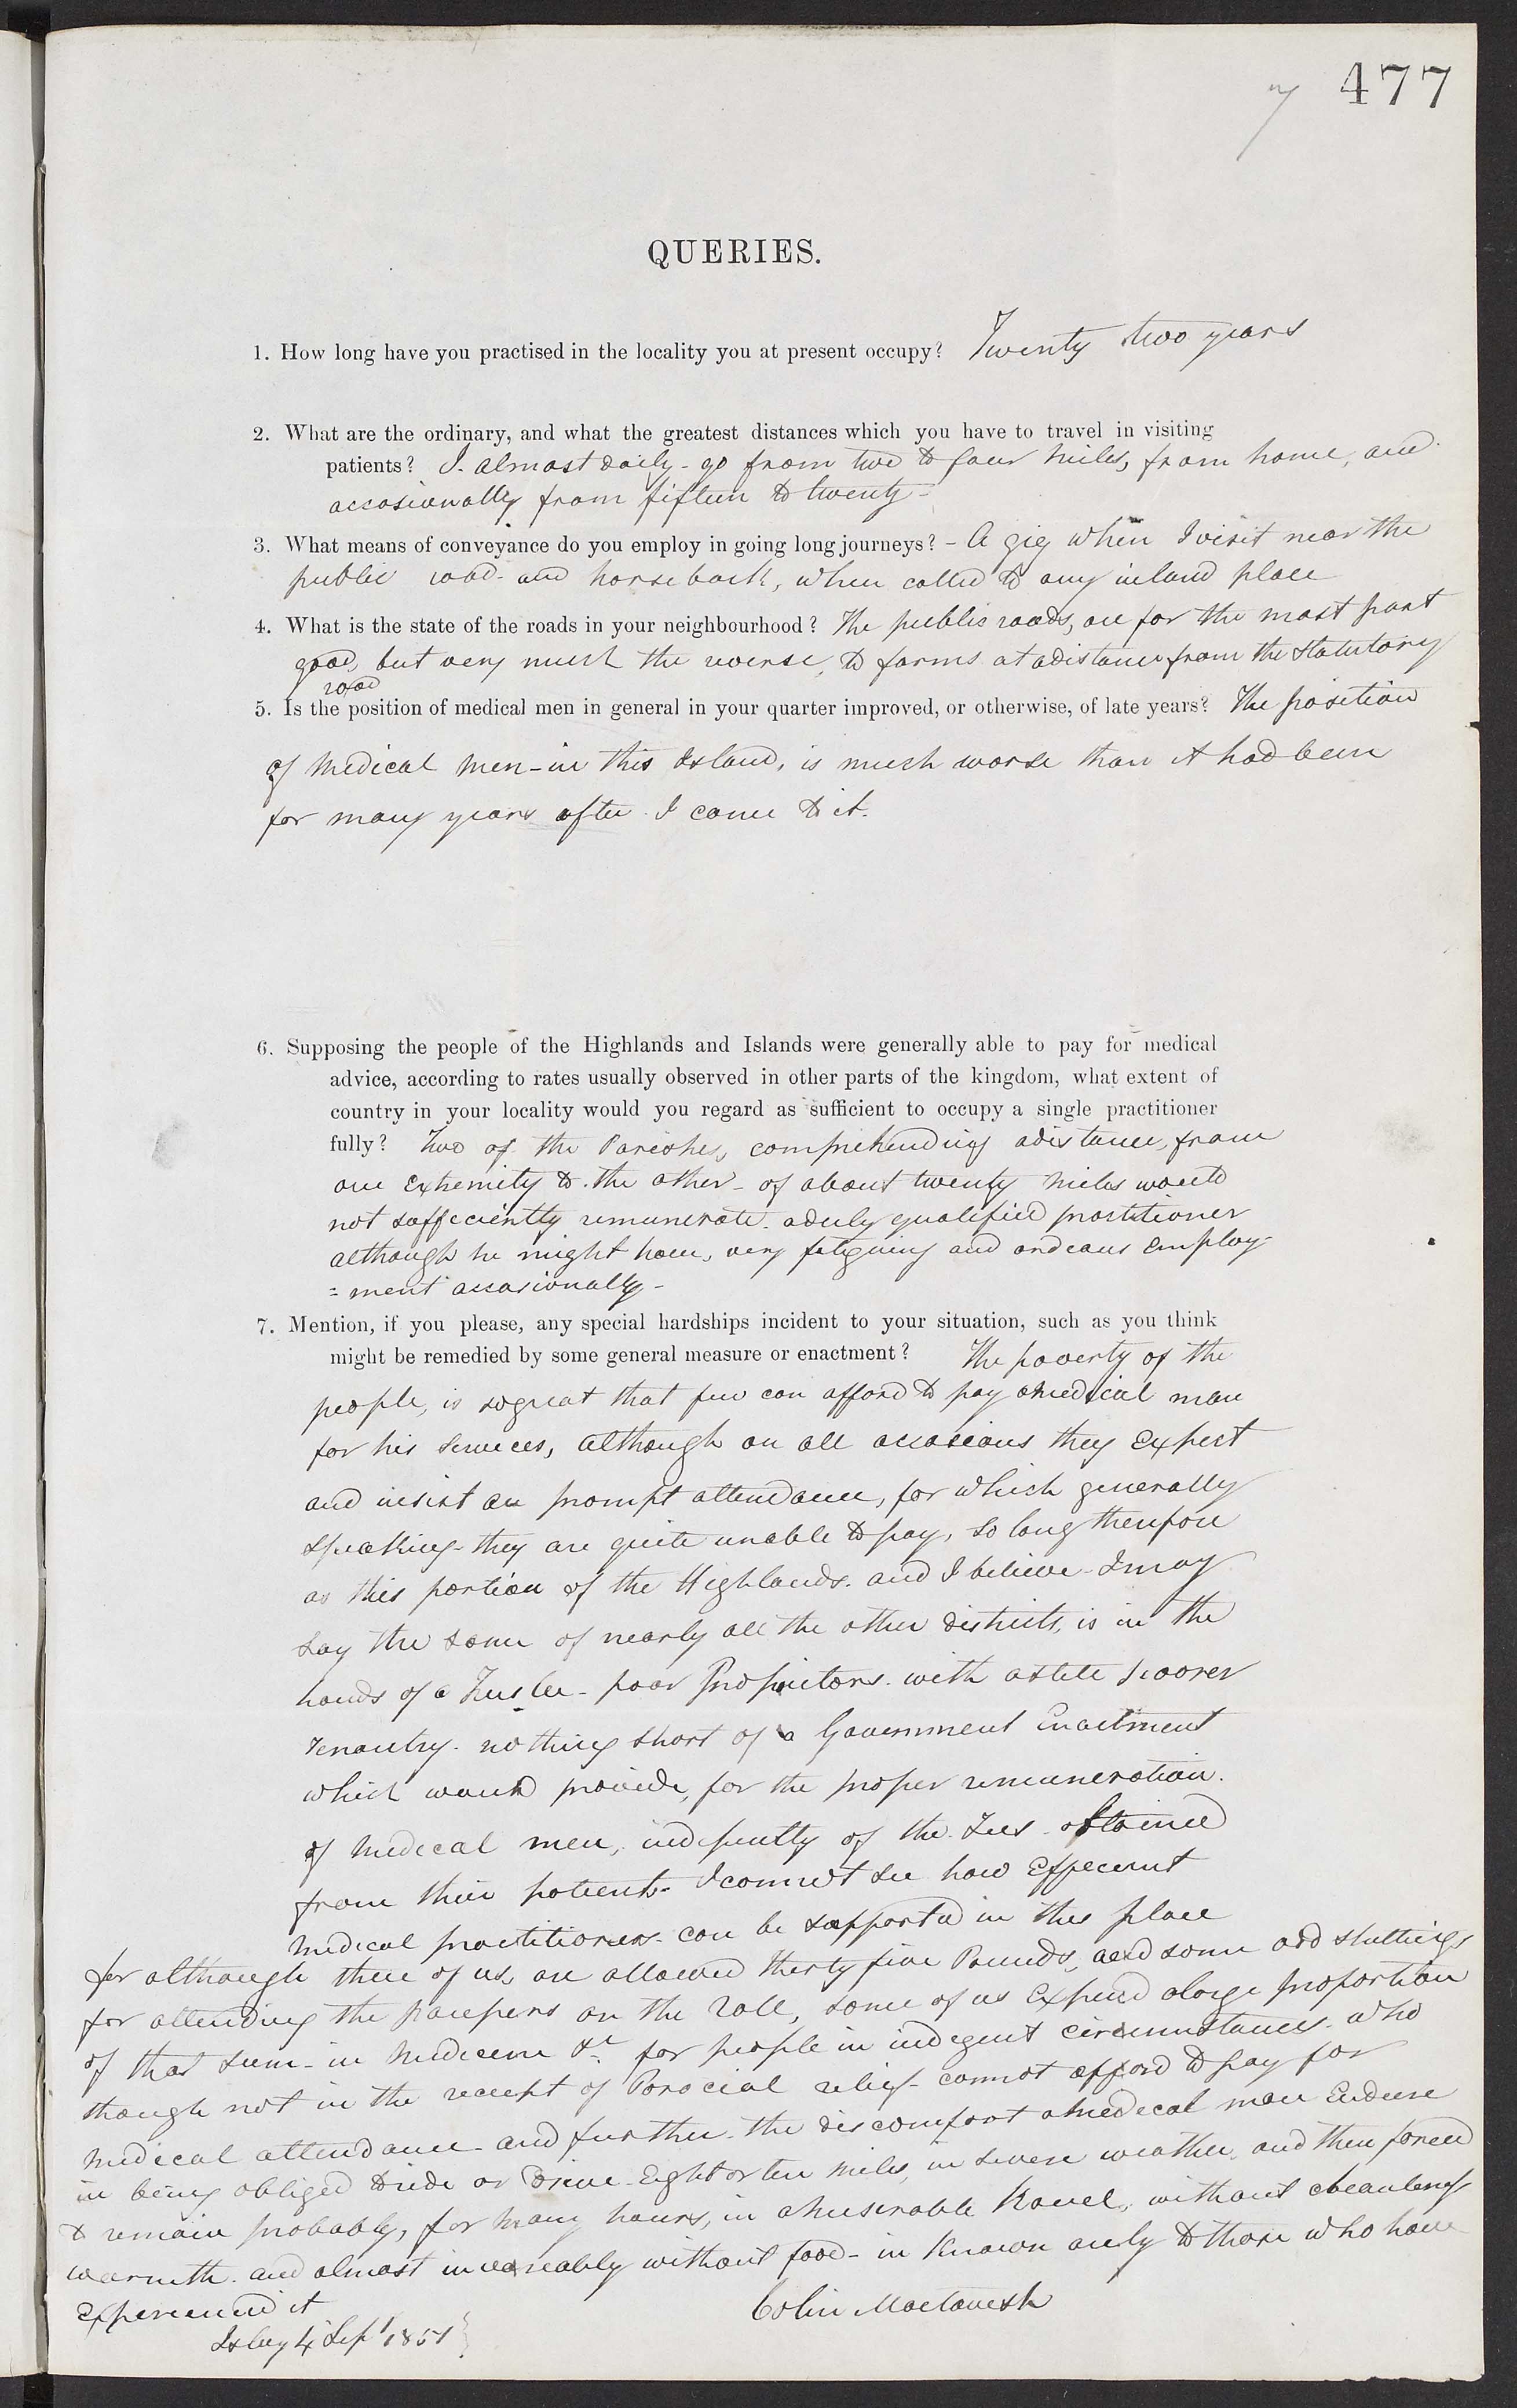 477
QUERIES.
1. How long have you practised in the locality you at present occupy? Twenty two years
2. What are the ordinary, and what the greatest distances which you have to travel in visiting
patients? I almost daily - go from two to four miles, from home, and
occasionally from fifteen to twenty -
3. What means of conveyance do you employ in going long journeys? - A gig when I visit near the
public road - and horseback, when called to any inland place
4. What is the state of the roads in your neighbourhood? The public roads, are for the most part
good, but very much the reverse, to farms at a distance from the Statutory
road
5. Is the position of medical men in general in your quarter improved, or otherwise, of late years? The position
of Medical men - in this Island, is much worse than it had been
for many years after I came to it.
6. Supposing the people of the Highlands and Islands were generally able to pay for medical
advice, according to rates usually observed in other parts of the kingdom, what extent of
country in your locality would you regard as sufficient to occupy a single practitioner
fully? Two of the Parishes, comprehending a distance, from
one extremity to the other - of about twenty miles would
not sufficiently remunerate a duly qualified practitioner
although he might have, very fatiguing and ardeous employ-
=ment occasionally -
7. Mention, if you please, any special hardships incident to your situation, such as you think
might be remedied by some general measure or enactment? The poverty of the
people, is so great that few can afford to pay a medical man
for his services, although on all occasions they expect
and insist on prompt attendance, for which generally
speaking - they are quite unable to pay, so long therefore
as this portion of the Highlands. and I believe - I may
say the same of nearly all the other districts, is in the
hands of a Trustee - poor Proprietors. with a still poorer
Tenantry. nothing short of a Government Enactment
which would provide, for the proper remuneration.
of Medical men, indepently of the fees obtained
from their patients - I cannot see how efficient
medical practitioners - can be supported in this place
for although three of us, are allowed thirty five Pounds, and some odd shillings
for attending the Paupers on the Roll, some of us expend a large proportion
of that sum - in Medicine &c for people in indigent circumstances - who
though not in the receipt of Parocial relief - cannot afford to pay for
Medical attendance - and further - the discomfort a medical man endure
in being obliged to ride or Drive - Eight or ten miles, in severe weather, and then forced
to remain probably, for many hours, in a miserable hovel, without cleanliness
warmth - and almost invareably without food - in known only to those who have
experienced it
Colin Mactavish
Islay 4 Sept 1851